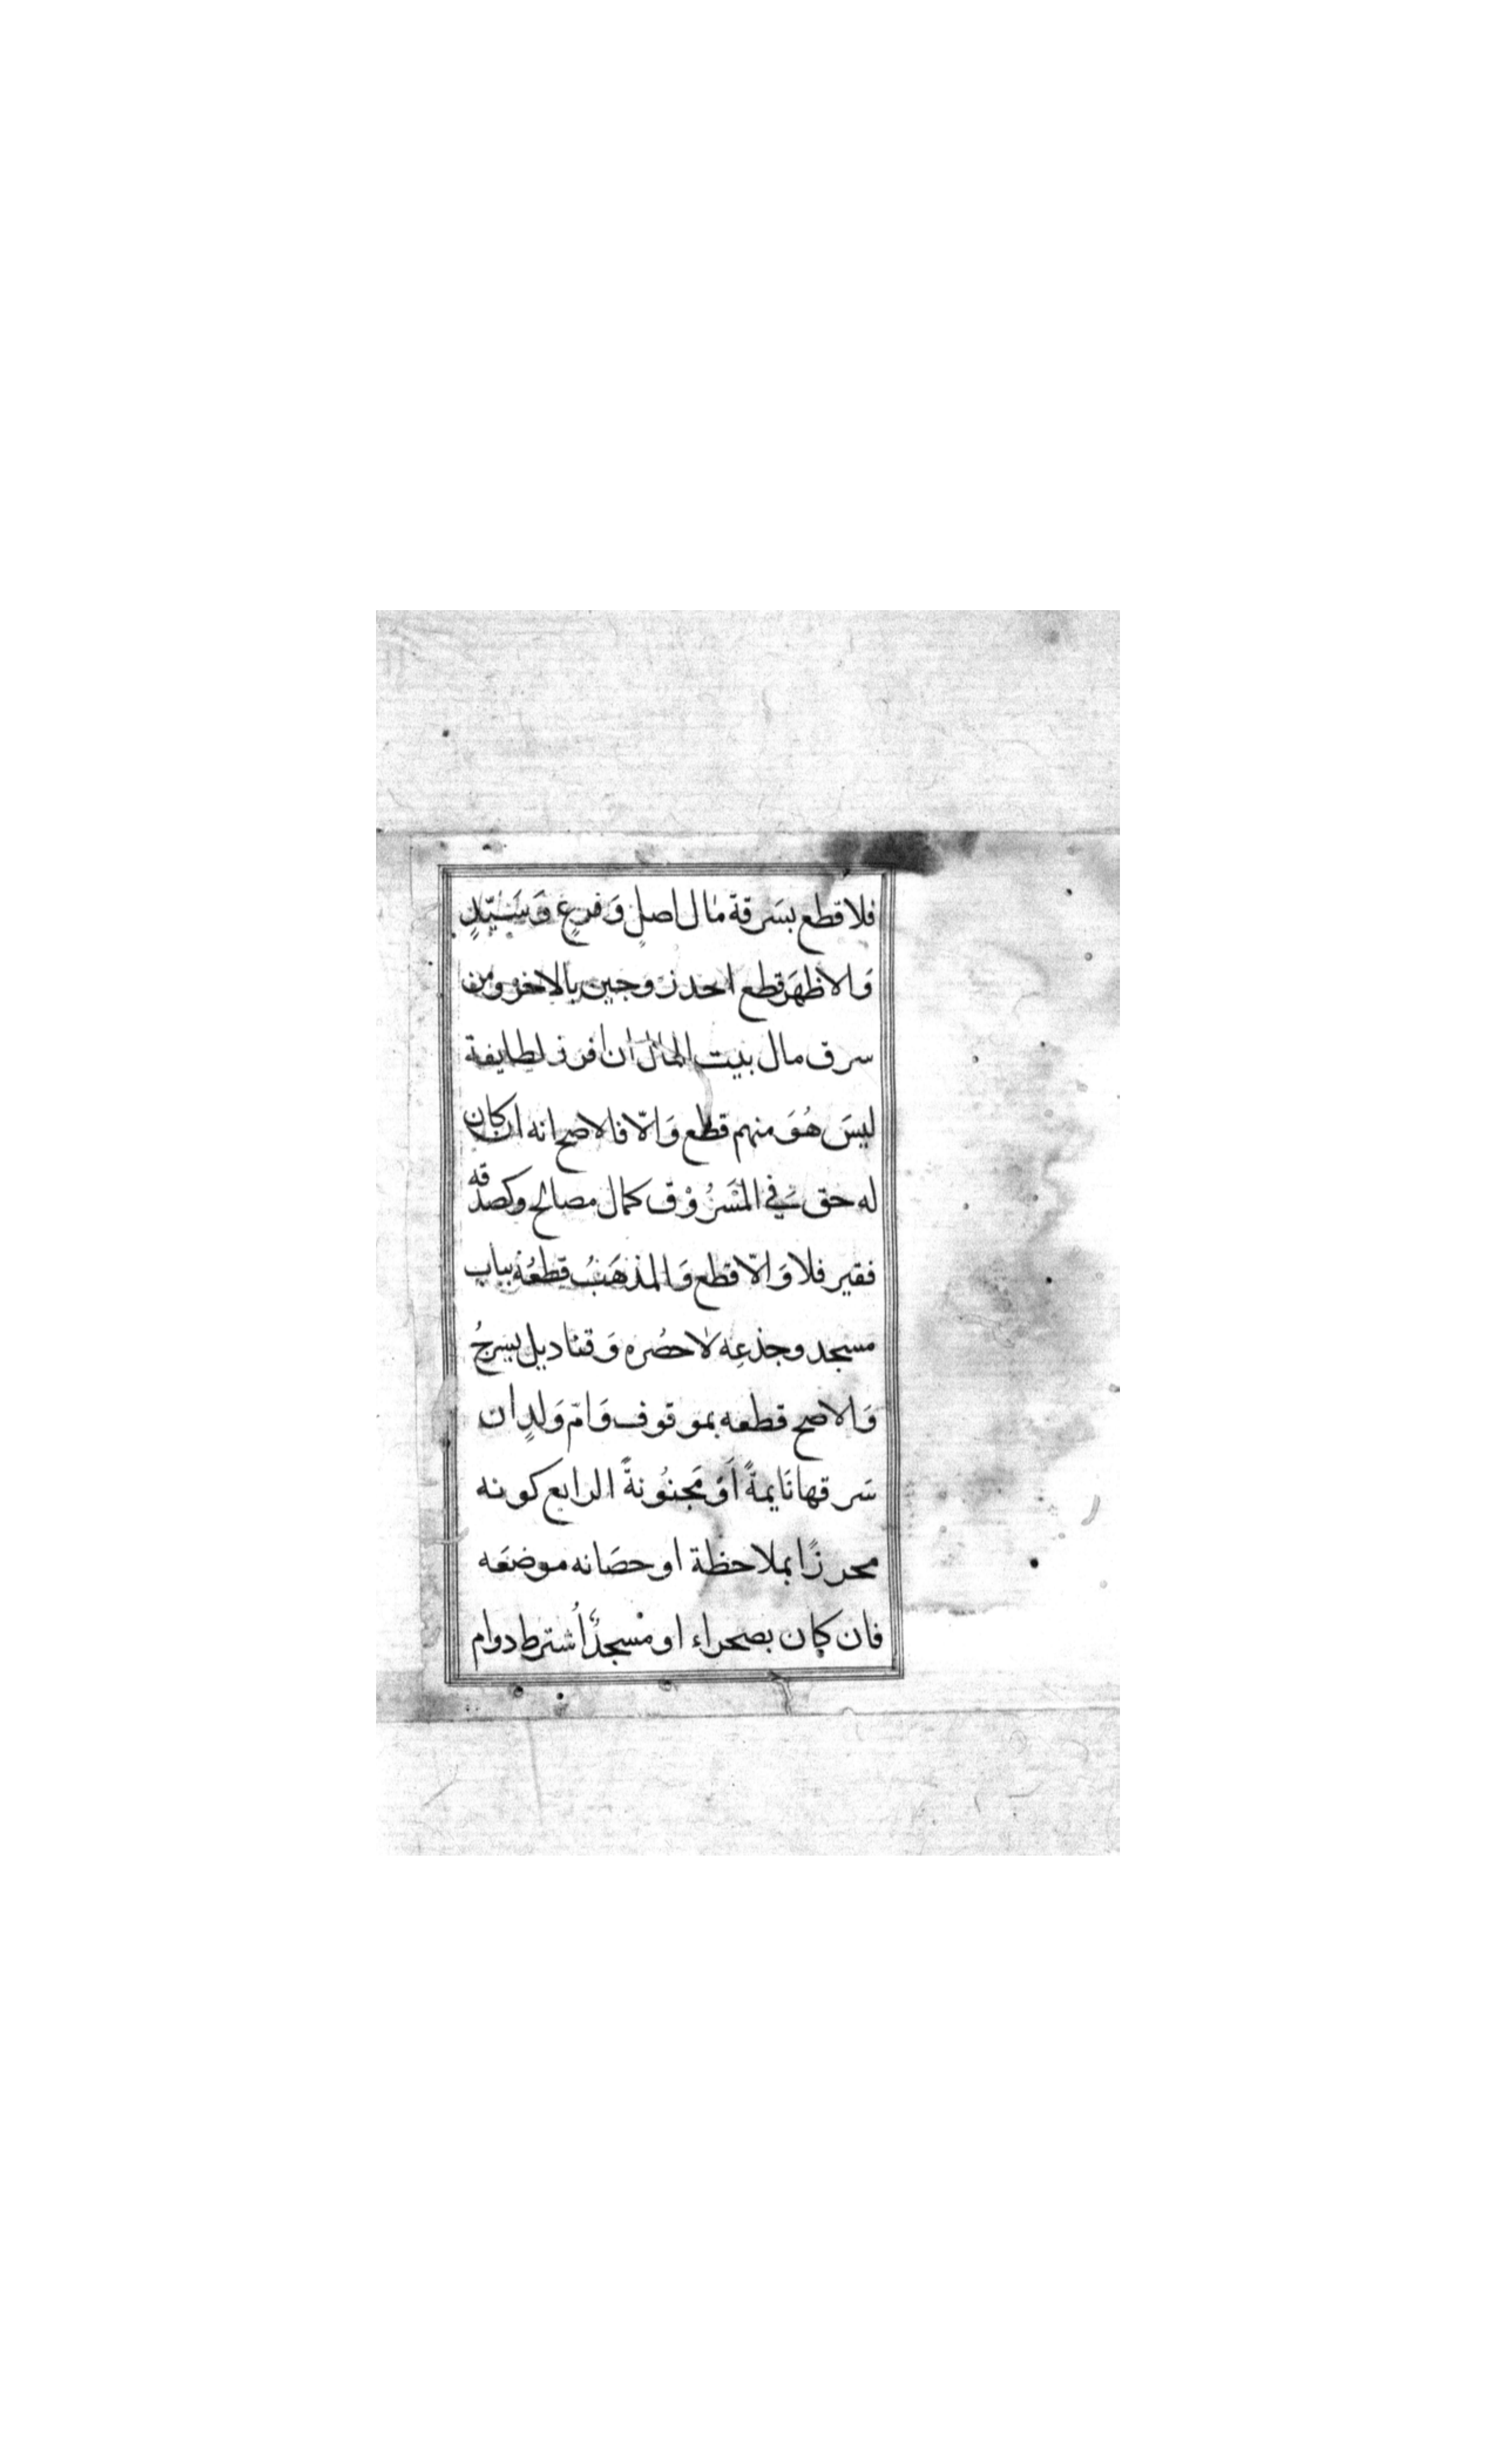 فلا قطع بسَرقة مال اصلٍ وَفرعٍ وَسَيّدٍ
وَالاظهَر قطع احد زوجين بالاخر ومن
سرق مال بيت المال ان افرز لطايفة
ليسَ هُوَ منهم قطع وَالّا فالاصح انه ان كان
له حق في المَسْرُوْق كمال مصالح وكصدقه
فقير فلا وَالّا قطع وَالمذهَبُ قطعُهُ بباب
مسجد وجذعِه لا حصُره وَقناديل يسرجُ
وَالاصح قطعه بموقوف وَامّ وَلدٍ ان
سَرقها نَايمةً اَوْ مَجنُونةً الرابع كونه
محرزًا بملاحظة او حصَانه موضعَه
فان كان بصحراء او مسْجدٌ اُشترط دوام